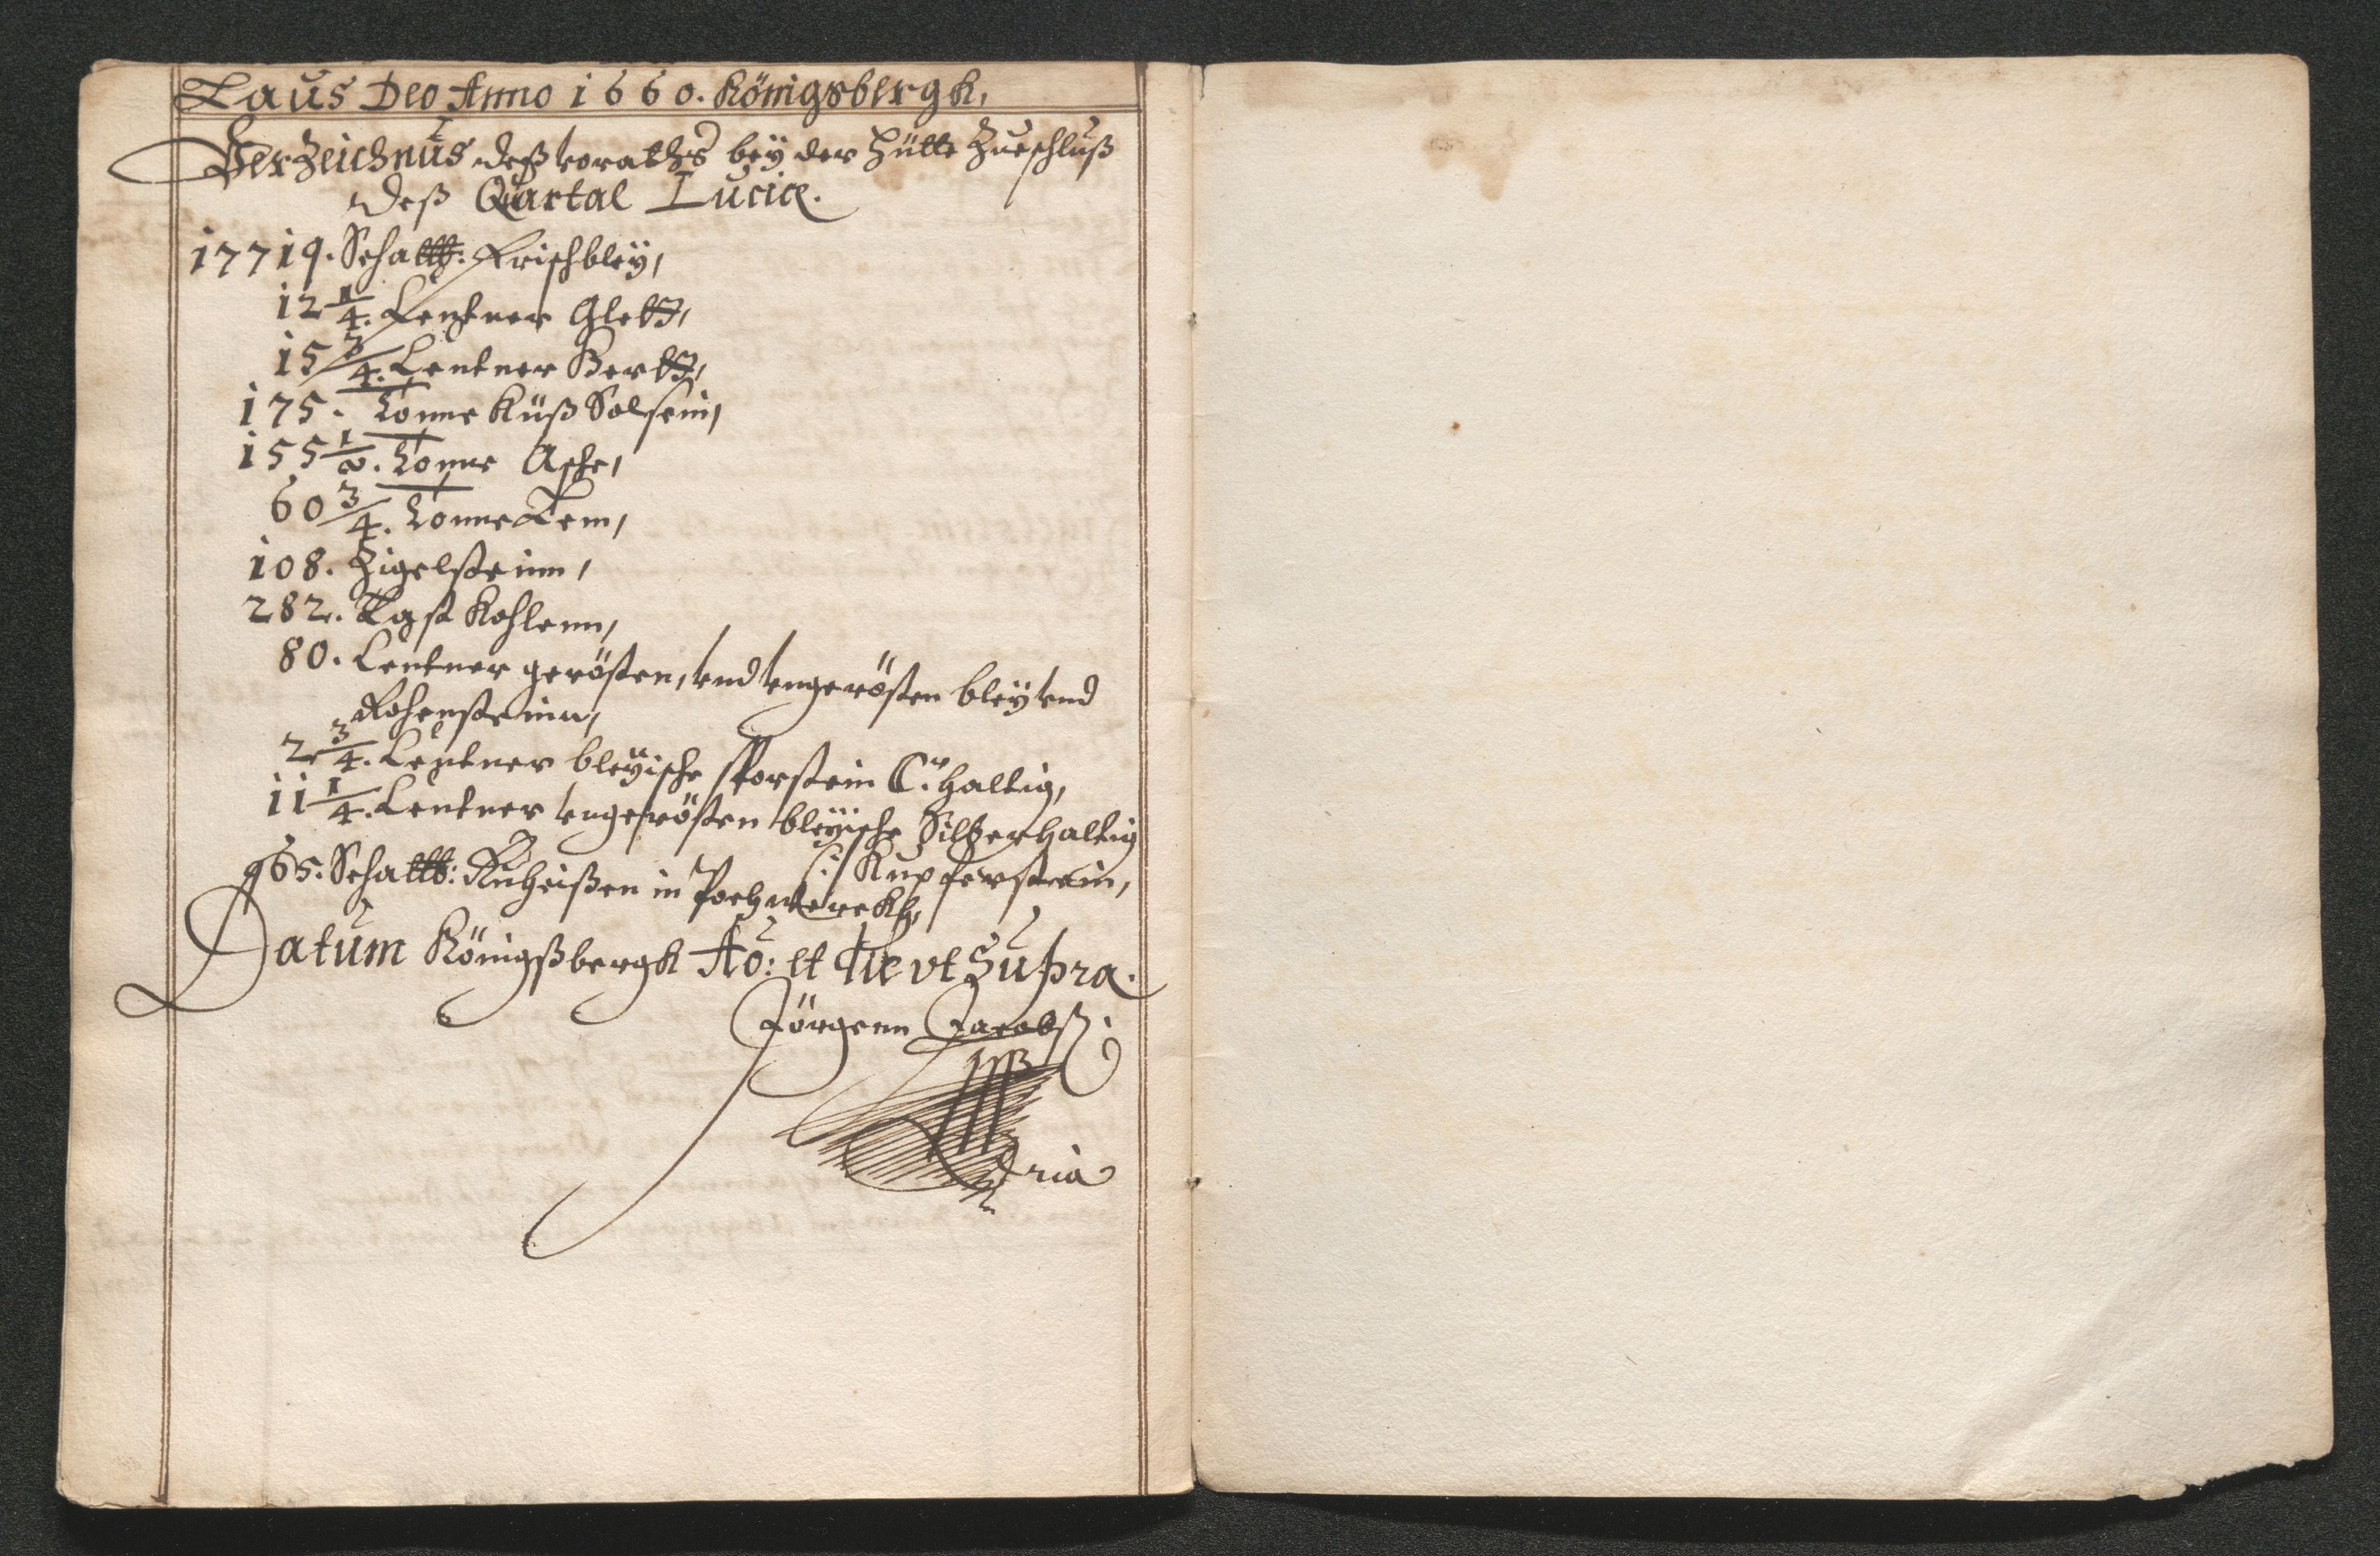 Laus Deo Anno 1660. Königsbergk,
Verzeichnus deß voraths bey der Hütte Zueschluß
deß Quartal Luciæ.
17719. Schal℔: Frischbley,
12 1/4. Centner Glett,
15 3/4. Centner Hertt,
175. Tonne Küß
155 1/2. Tonne Asche,
60 3/4. Tonne Lem,
108. Zigelsteinn,
282. Last Kohlenn,
80. Centner gerösten, vnd vngerösten bley vnd
Rohensteinn,
2 3/4. Centner bleyische Sporstein C. haltig,
11 1/4. Centner vngerösten bleyische Silberhaltig
/: Kupferstein,
965. Schal℔: Ruheißen in Pochwerckh,
Datum Königßbergk Ao: et die vt Supra.
Jörgenn Jacobß.
Mppria